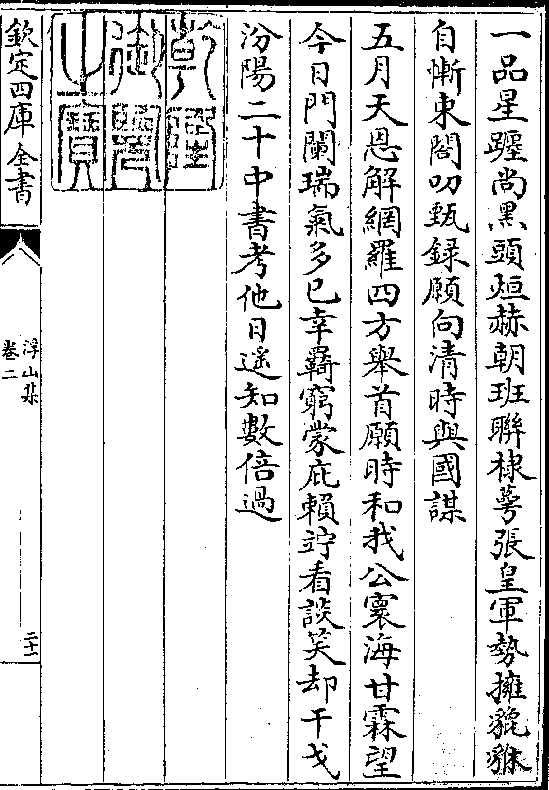 一品星躔尚黑頭烜赫朝班聯棣萼張皇軍勢擁貔貅
自慚東閣叨甄録願向清時與國謀
五月天恩解網羅四方舉首願時和我公寰海甘霖望
今日門闌瑞氣多已幸羇窮蒙庇賴竚看談笑却干戈
汾陽二十中書考他日遥知數倍過
乾隆御覽之寶
欽定四庫全書
浮山集
卷二
二十一